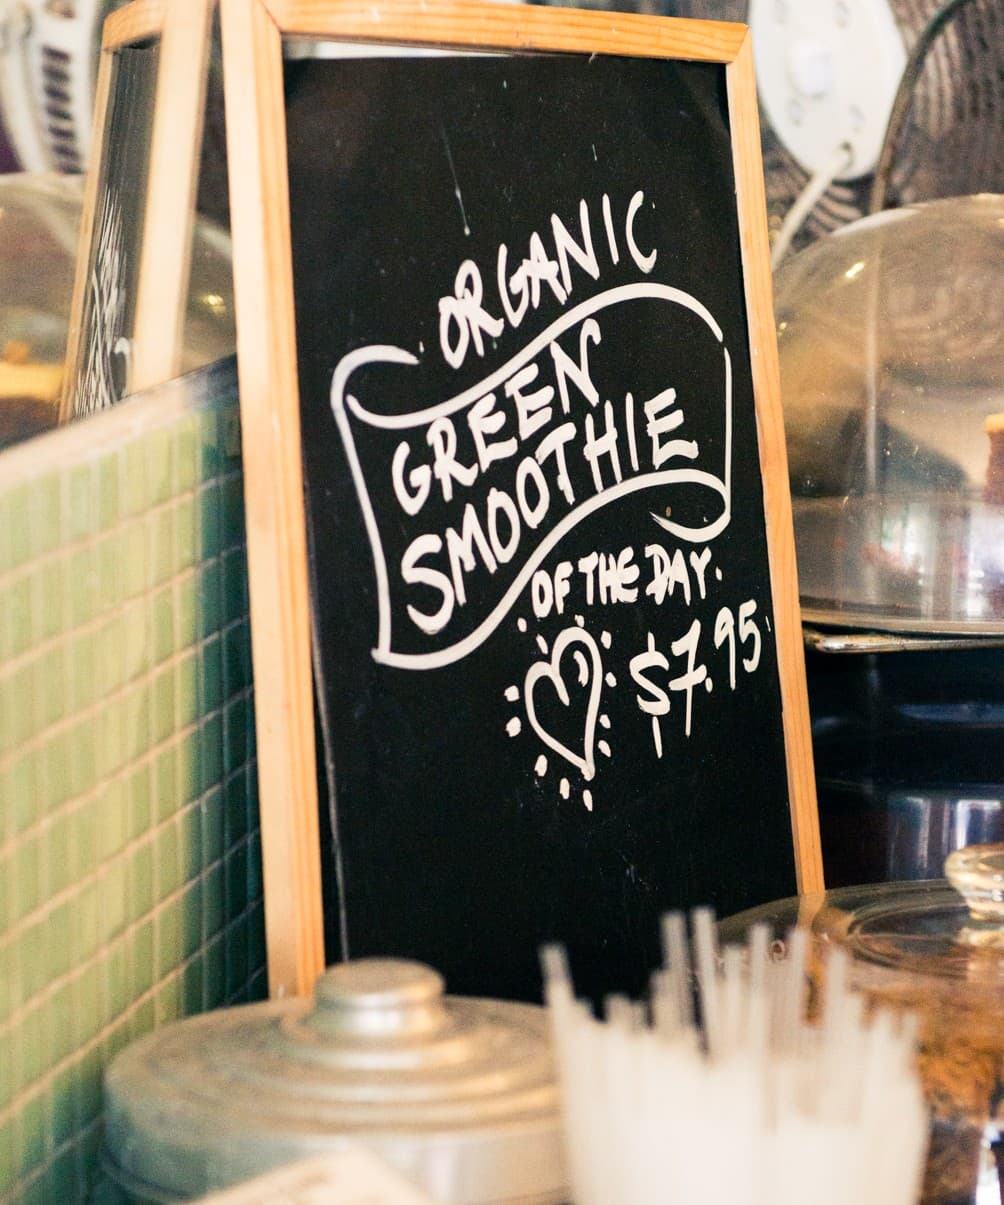 ORGANIC
GREEN
SMOOTHIE
OF THE DAY.
$7.95